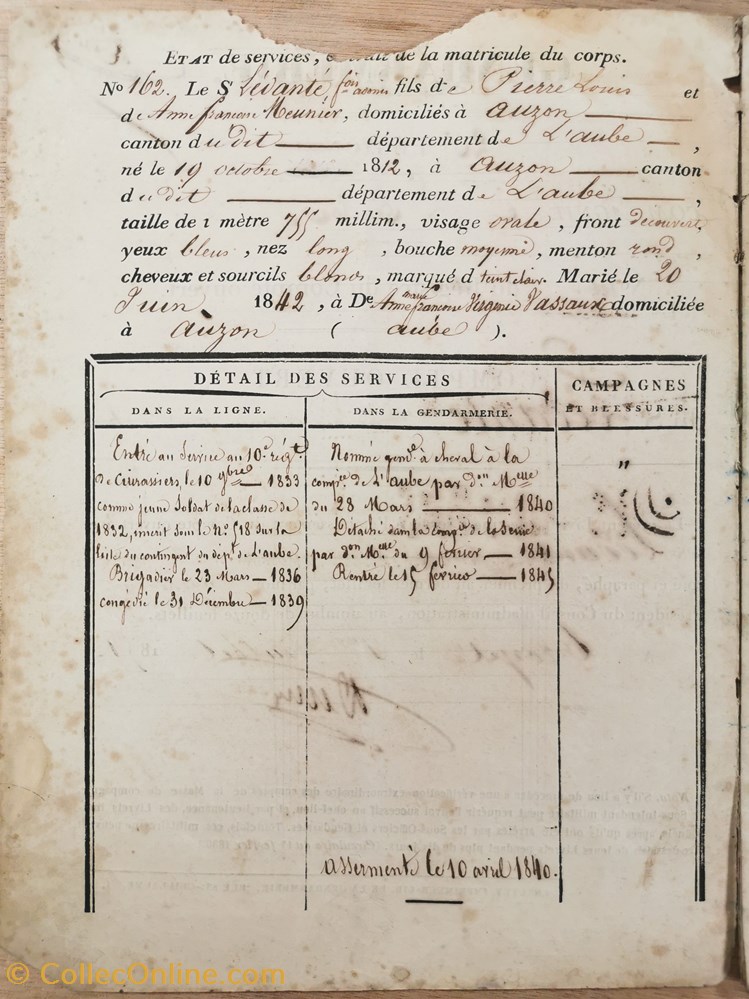 ETAT de services, extrait de la matricule du corps.
No 162. Le S Lévanté, fois admis fils de Pierre Louis et
de Anne françoise Meunier, domiciliés à auzon
canton dudit département de L'aube,
né le 19 octobre 1812, à auzon canton
dudit département de L'aube,
taille de 1 mètre 755 millim., visage ovale, front découvert,
yeux bleus, nez long, bouche moyenne, menton rond,
cheveux et sourcils blonds, marqué d teint clair. Marié le 20
Juin 1842, à De Anne marie françoise Virginie Vassaux domiciliée
à auzon (aube).
DÉTAIL DES SERVICES
CAMPAGNES
ET BLESSURES.
DANS LA LIGNE.
Entré au Service au 10e régt.
de Cuirassiers, le 10 9bre 1833
comme jeune Soldat de la classe de
1832, inscrit sous le No 518 sur la
liste du contingent du dept. de L'aube.
Brigadier le 23 Mars 1836
congédié le 31 Décembre 1839
DANS LA GENDARMERIE.
Nommé gende. à cheval à la
compie de L'aube par don Melle
du 28 Mars 1840
Détaché dans la compie de la Seine
par don Melle du 9 février 1841
Rentré le 15 février 1845
assermenté le 10 avril 1840.
"
© CollecOnline.com